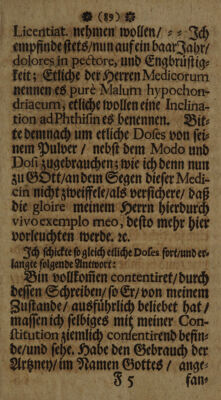 (89)
Licentiat. nehmen wollen/ ⸗⸗ Ich
empfinde stets/ nun auf ein baar Jahr/
dolores in pectore, und Engbrüstig⸗
keit; Etliche der Herren Medicorum
nennen es purè Malum hypochon⸗
driacum, etliche wollen eine Inclina⸗
tion ad Phthisin es benennen. Bit⸗
te demnach um etliche Doses von sei⸗
nem Pulver / nebst dem Modo und
Dosi zugebrauchen; wie ich denn nun
zu GOtt/ an dem Segen dieser Medi⸗
cin nicht zweiffele/ als versichere/ daß
die gloire meinem Herrn hierdurch
vivo exemplo meo, desto mehr hier
vorleuchten werde. ꝛc.
Ich schickte so gleich etliche Doses fort/ und er⸗
langte folgende Antwort:
Bin vollkom̃en contentiret/ durch
dessen Schreiben/ so Er/ von meinem
Zustande/ ausführlich beliebet hat/
massen ich selbiges mit meiner Con⸗
stitution ziemlich consentirend befin⸗
de/ und sehe. Habe den Gebrauch der
Artzney/ im Namen Gottes/ ange⸗
F 5 fan⸗